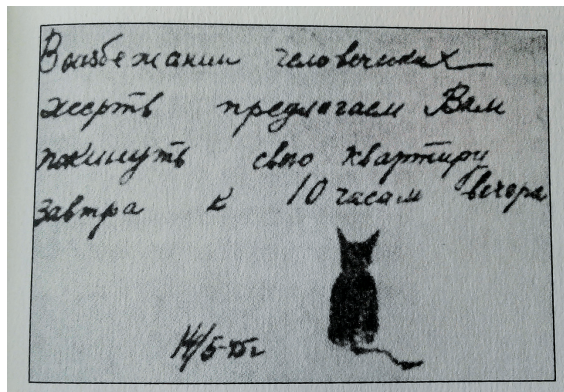 Воизбежании человеческих
жертв предлагаем Вам
покинуть свою квартиру
завтра к 10 часам вечера